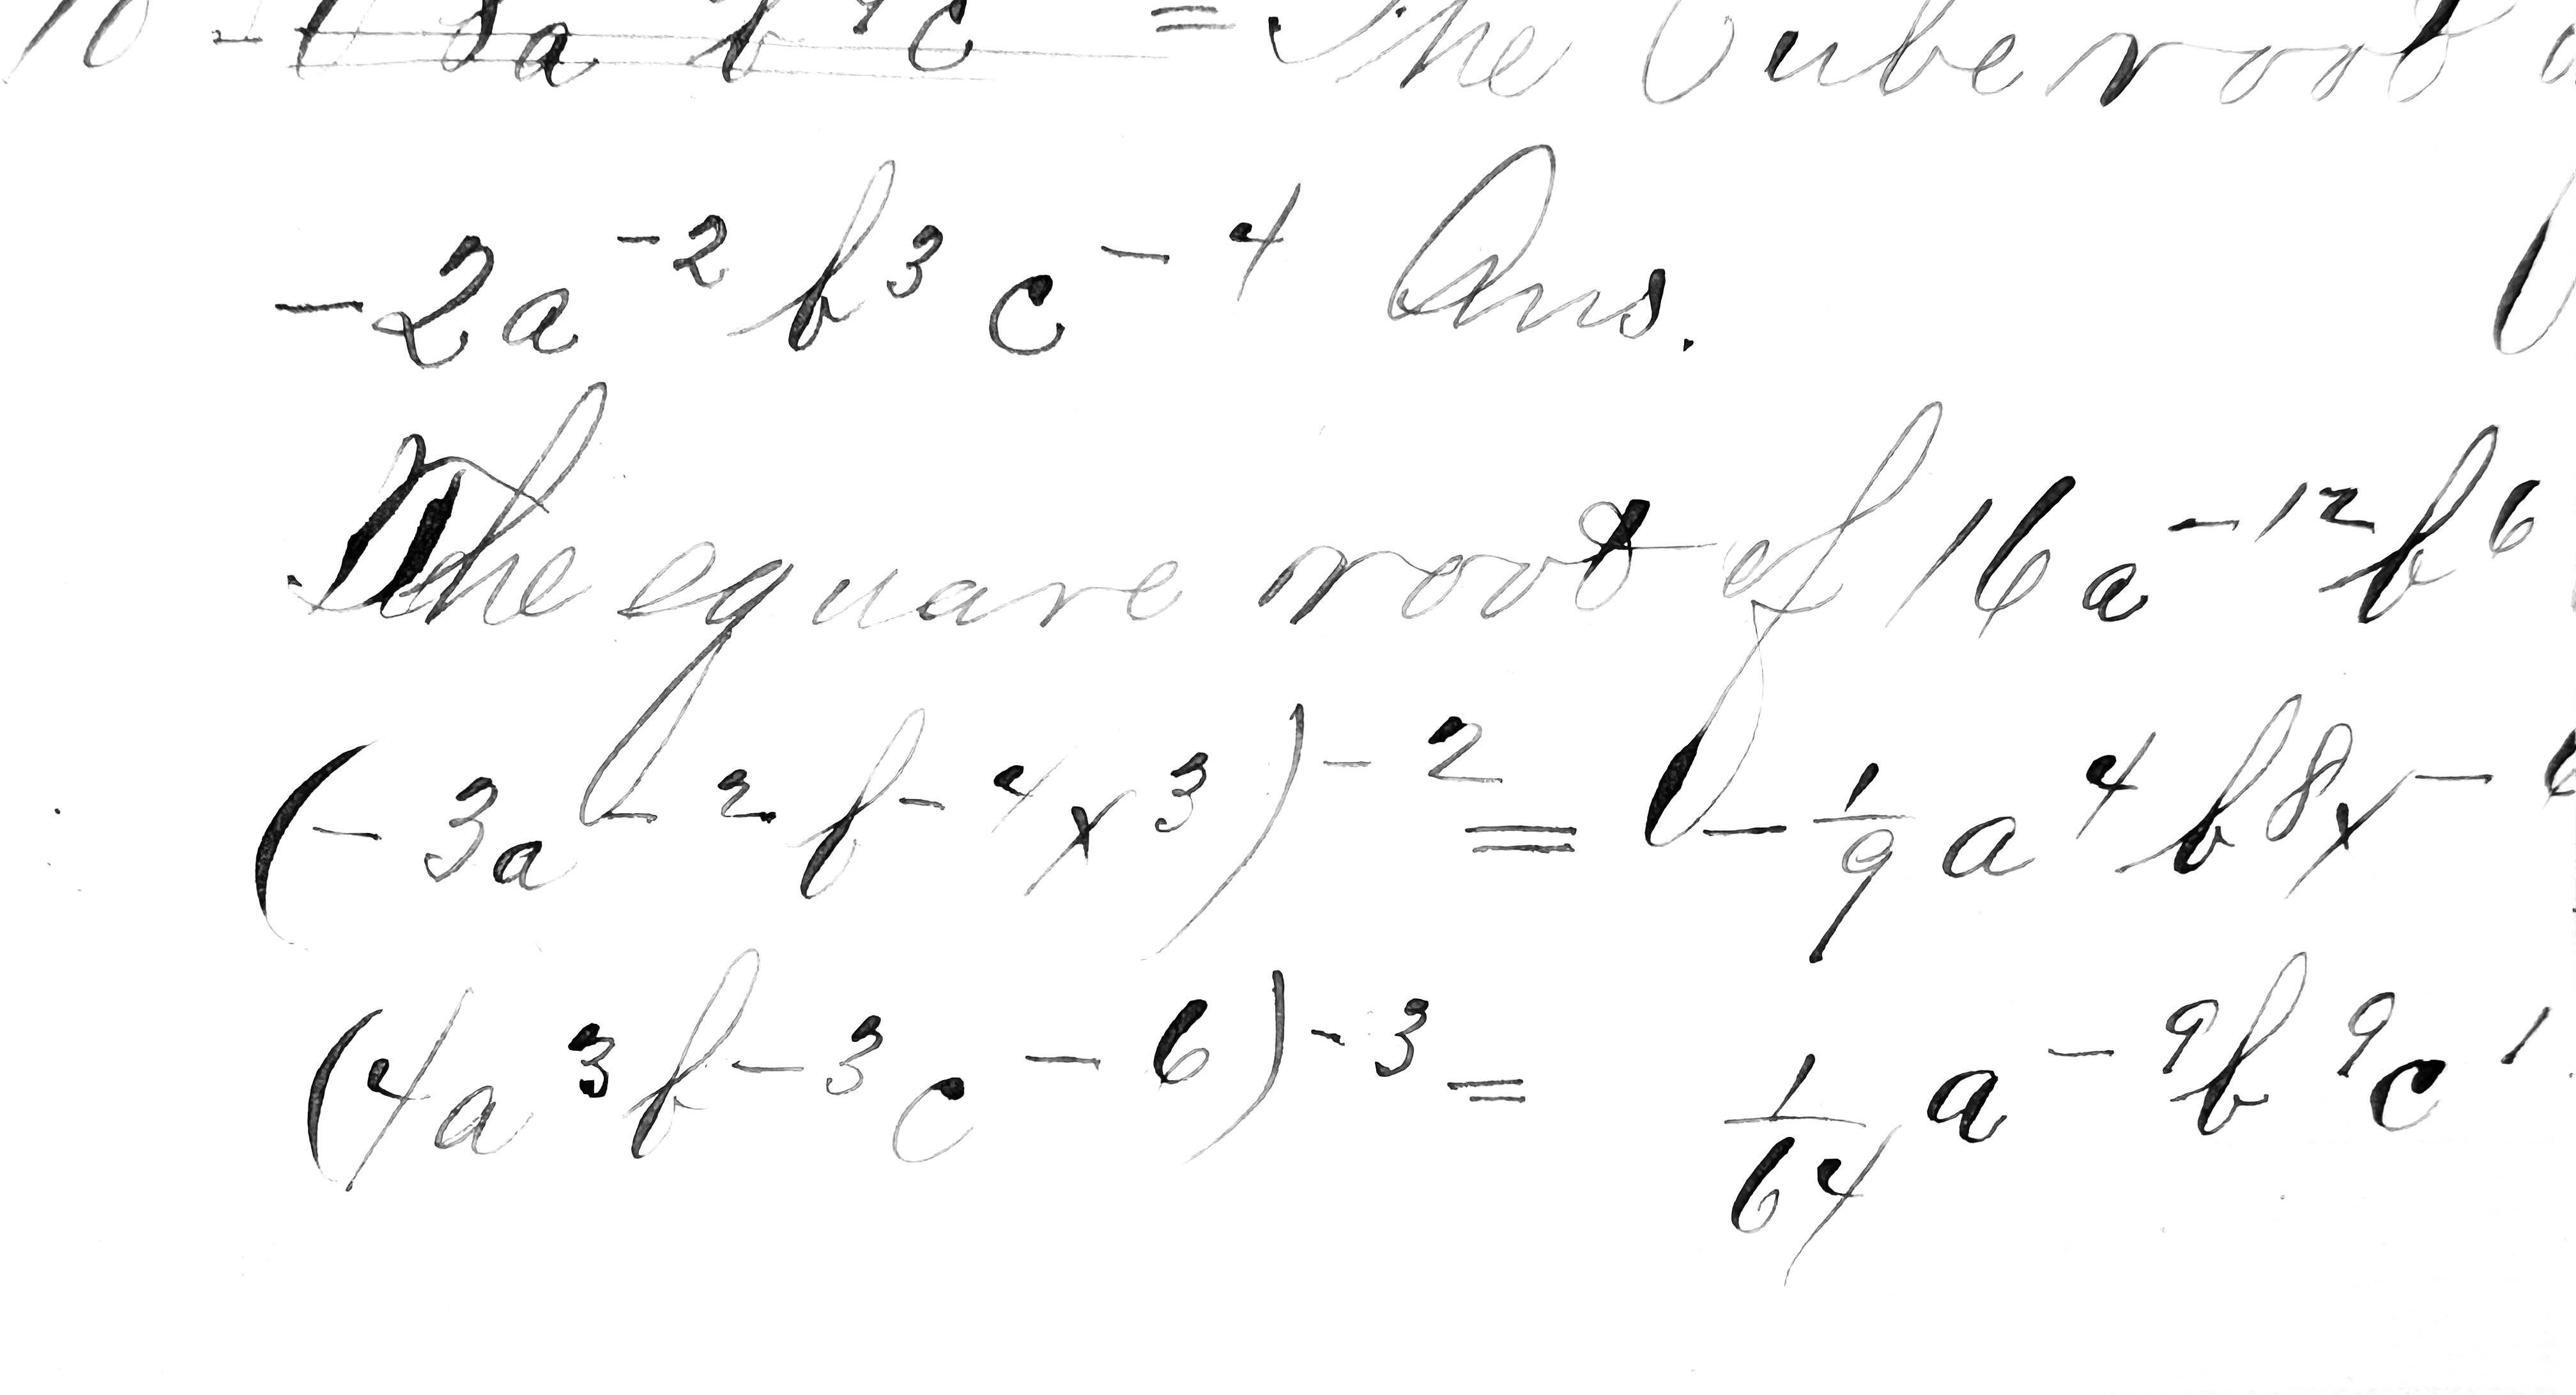 8a b c = The Cube root
-2a⁻² b³ c⁻⁴ Ans.
The square root of 16a⁻¹²b⁶
(-3a⁻²b⁻⁴x³)⁻² = -1/9 a⁴ b⁸x⁻
(4a³b⁻³c⁻⁶)⁻³ = 1/64 a⁻⁹b⁹c¹